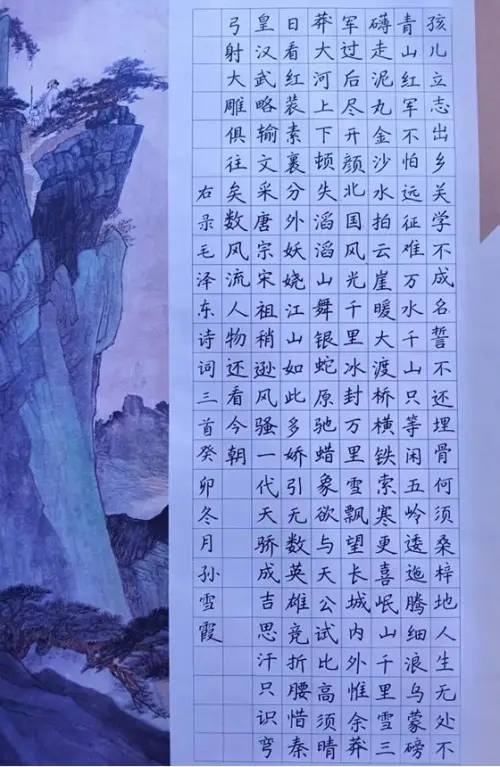 孩儿立志出乡关学不成名誓不还埋骨何须桑梓地人生无处不
青山红军不怕远征难万水千山只等闲五岭逶迤腾细浪乌蒙磅
礴走泥丸金沙水拍云崖暖大渡桥横铁索寒更喜岷山千里雪三
军过后尽开颜北国风光千里冰封万里雪飘望长城内外惟余莽
莽大河上下顿失滔滔山舞银蛇原驰蜡象欲与天公试比高须晴
日看红装素裹分外妖娆江山如此多娇引无数英雄竞折腰惜秦
皇汉武略输文采唐宗宋祖稍逊风骚一代天骄成吉思汗只识弯
弓射大雕俱往矣数风流人物还看今朝
右录毛泽东诗词三首癸卯冬月孙雪霞